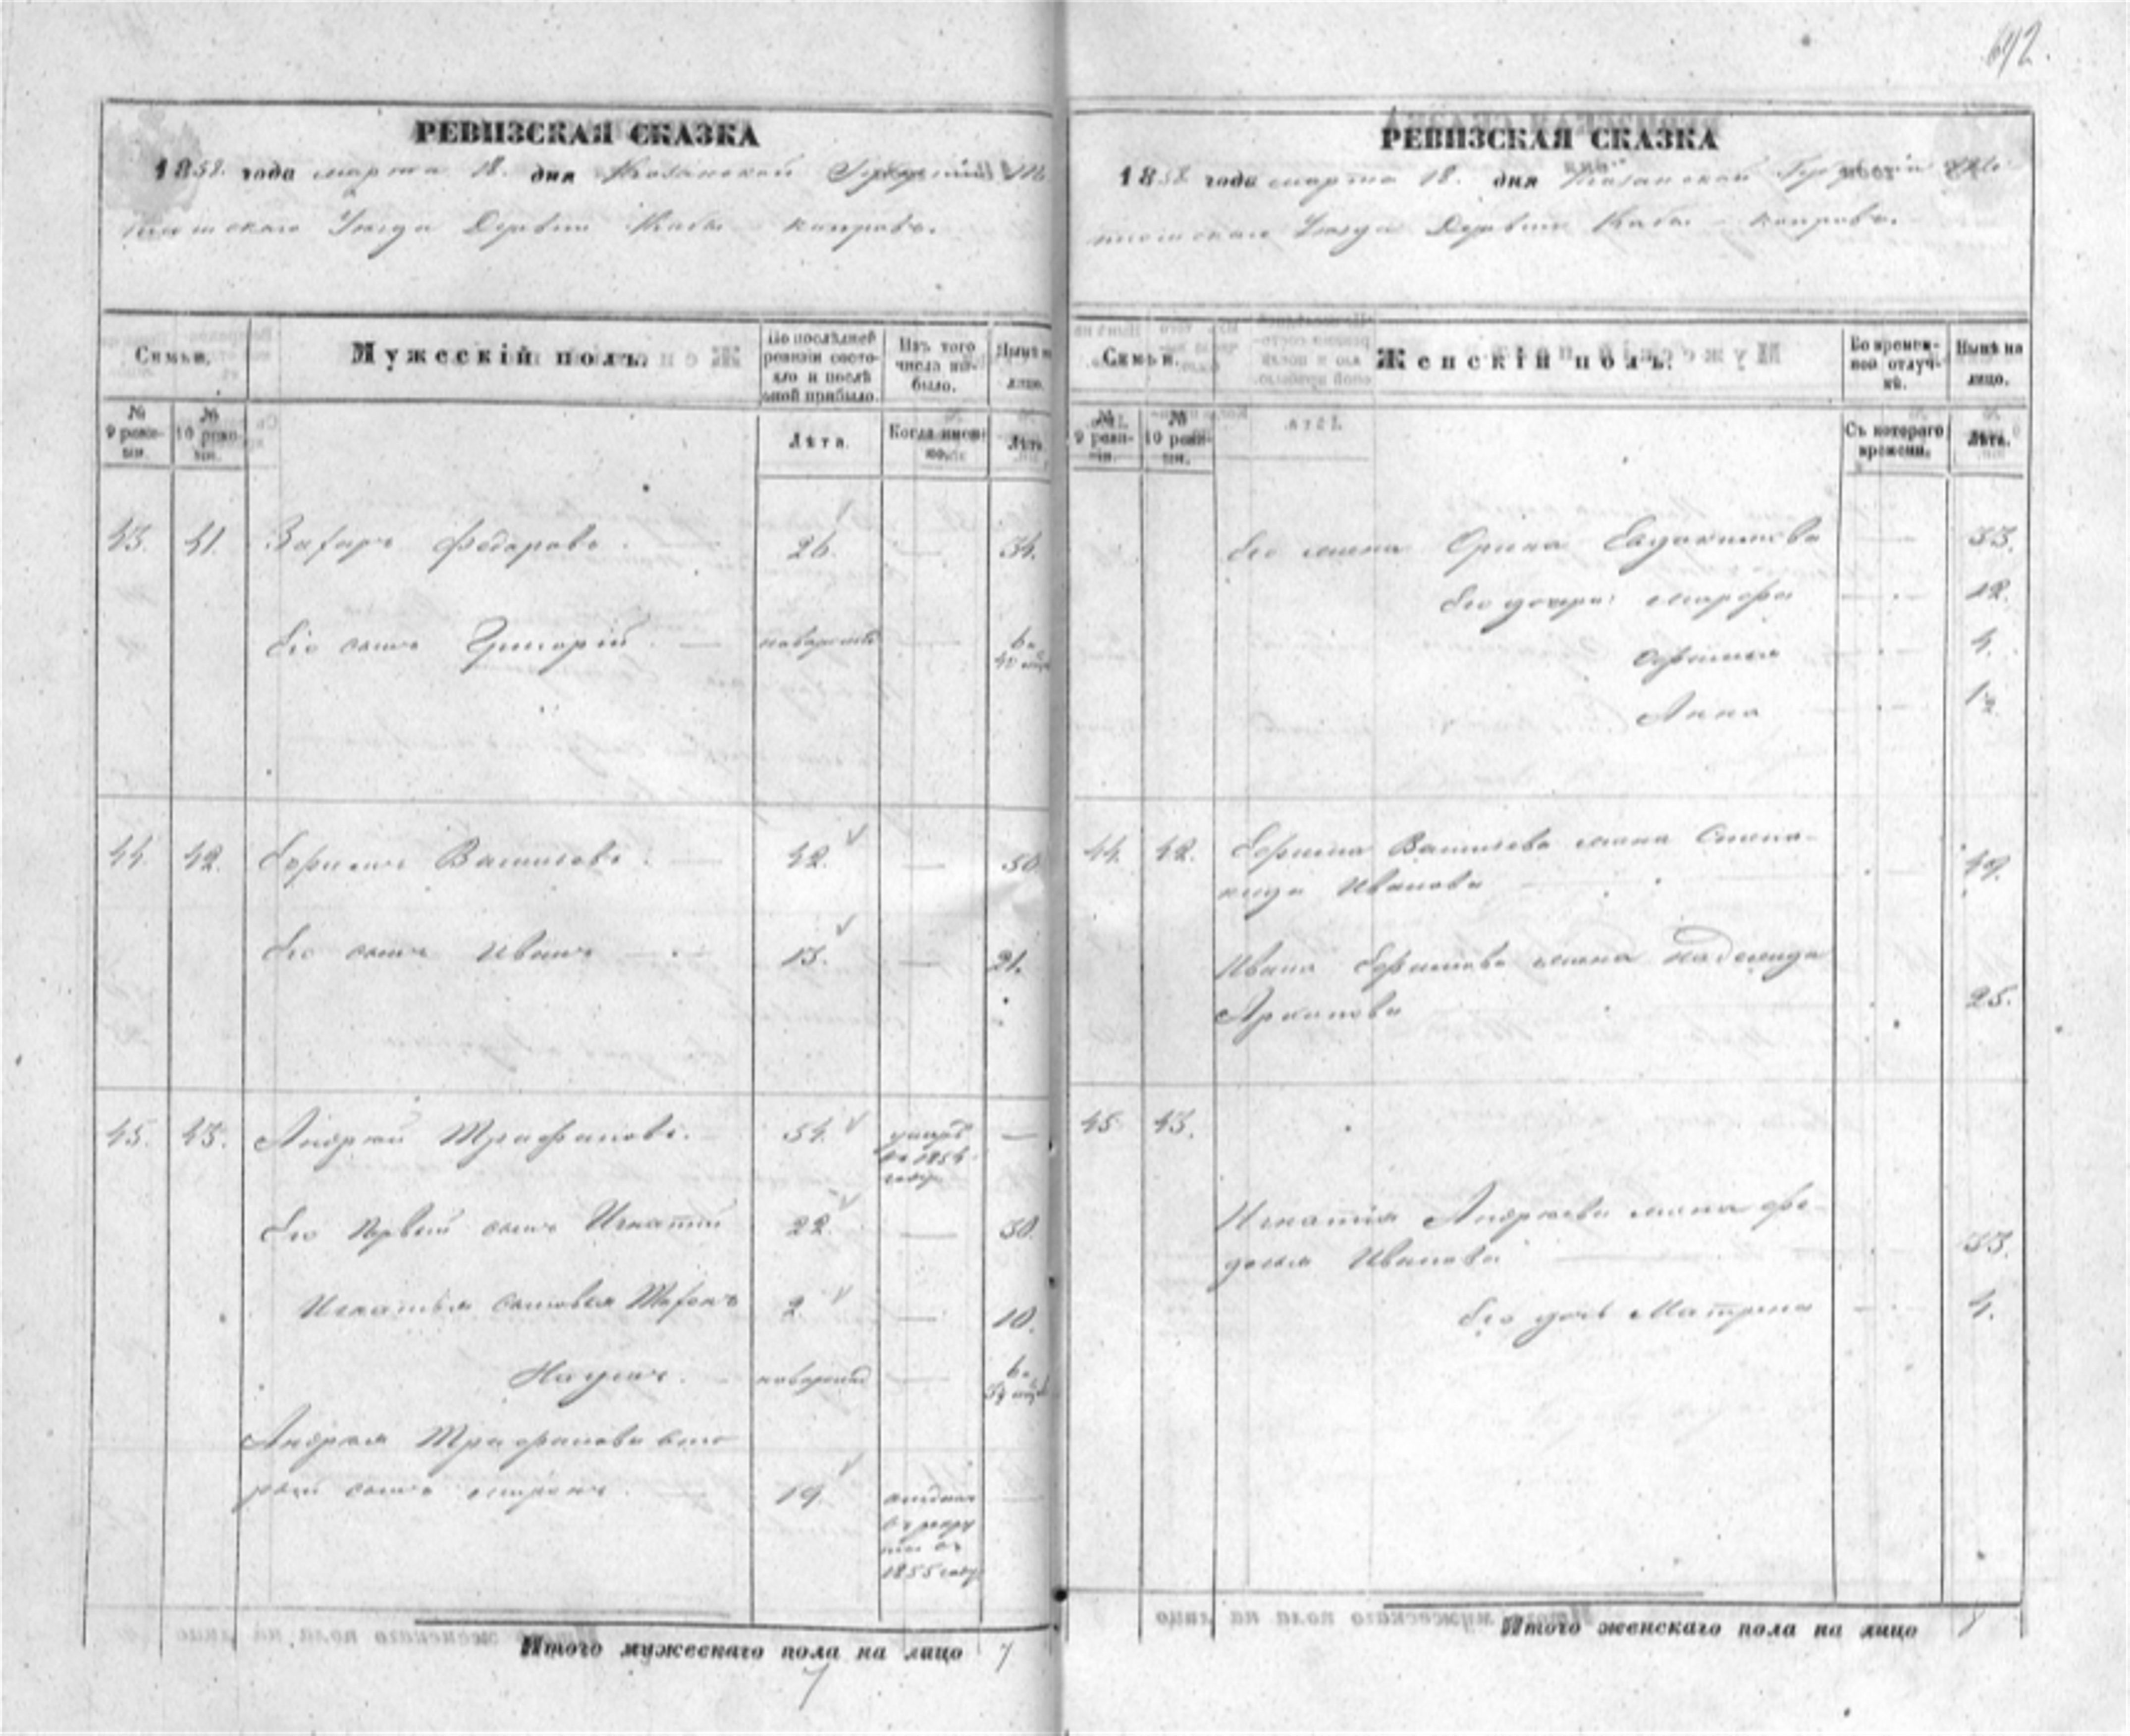 692.
РЕВИЗСКАЯ СКАЗКА
1858. года марта 18. дня Казанской Губерніи
Уѣзда Деревни Каба копровъ.
Семьи.
Мужескій полъ.
По послѣдней ревизіи состояло и послѣ оной прибыло.
Изъ того числа выбыло.
Нынѣ на лицо.
№ 9 ревизіи.
№ 10 ревизіи.
Лѣта.
Когда именно.
Лѣта.
43. 41. Захаръ Федоровъ. 26. 34.
Его сынъ Григорій новорожд
44 42. Ефимъ Васильевъ. 42. 50.
Его сынъ Иванъ 13. 21.
45. 43. Андрей Трафимовъ. 54. умеръ въ 1854 году —
Его первый сынъ Игнатій 22. 30.
Игнатья сыновья 2. 10.
Наумъ. новорожд
Андрея Трафимова вто
рой сынъ 19. отданъ въ рекруты въ 1855 году
Итого мужескаго пола на лицо 7
7
РЕВИЗСКАЯ СКАЗКА
1858. года марта 18. дня Казанской Губерніи
Уѣзда Деревни Каба копровъ.
Семьи.
Женскій полъ.
Во временной отлучкѣ.
Нынѣ на лицо.
№ 9 ревизіи.
№ 10 ревизіи.
Съ котораго времени.
Лѣта.
Его жена Орина Евдокимова 33.
Его дочери: Марфа 12.
4.
Анна 1/2
44. 42. Ефима Васильева жена Степа-
нида Иванова 49.
Ивана Ефимова жена Надежда
Архипова 25.
45 43.
Игнатія Андреева жена Фе-
досья Иванова 33.
Его дочь Матрена 4.
Итого женскаго пола на лицо 8